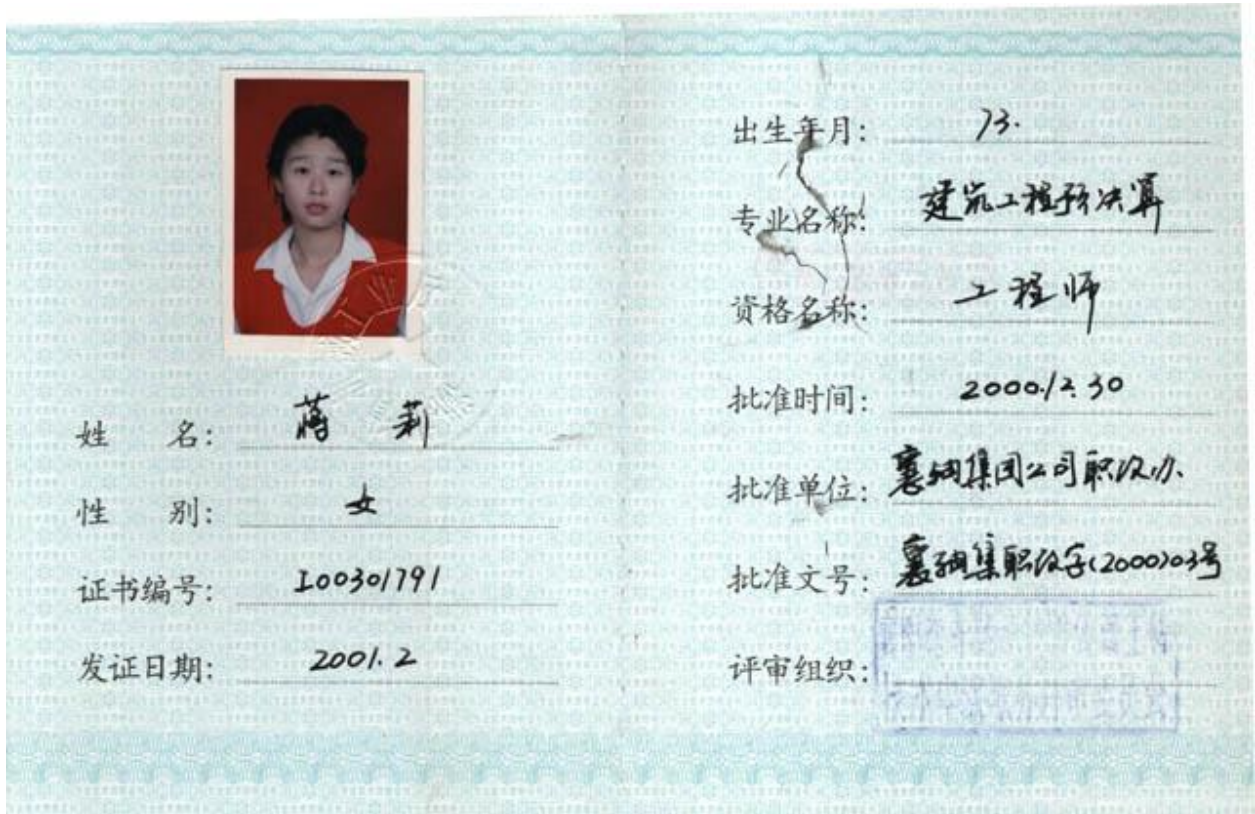 姓 名: 蒋 莉
性 别: 女
证书编号: I00301791
发证日期: 2001.2
出生年月: 73.
专业名称: 建筑工程预决算
资格名称: 工程师
批准时间: 2000.12.30
批准单位: 襄钢集团公司职改办.
批准文号: 襄钢集职改字(2000)03号
评审组织: